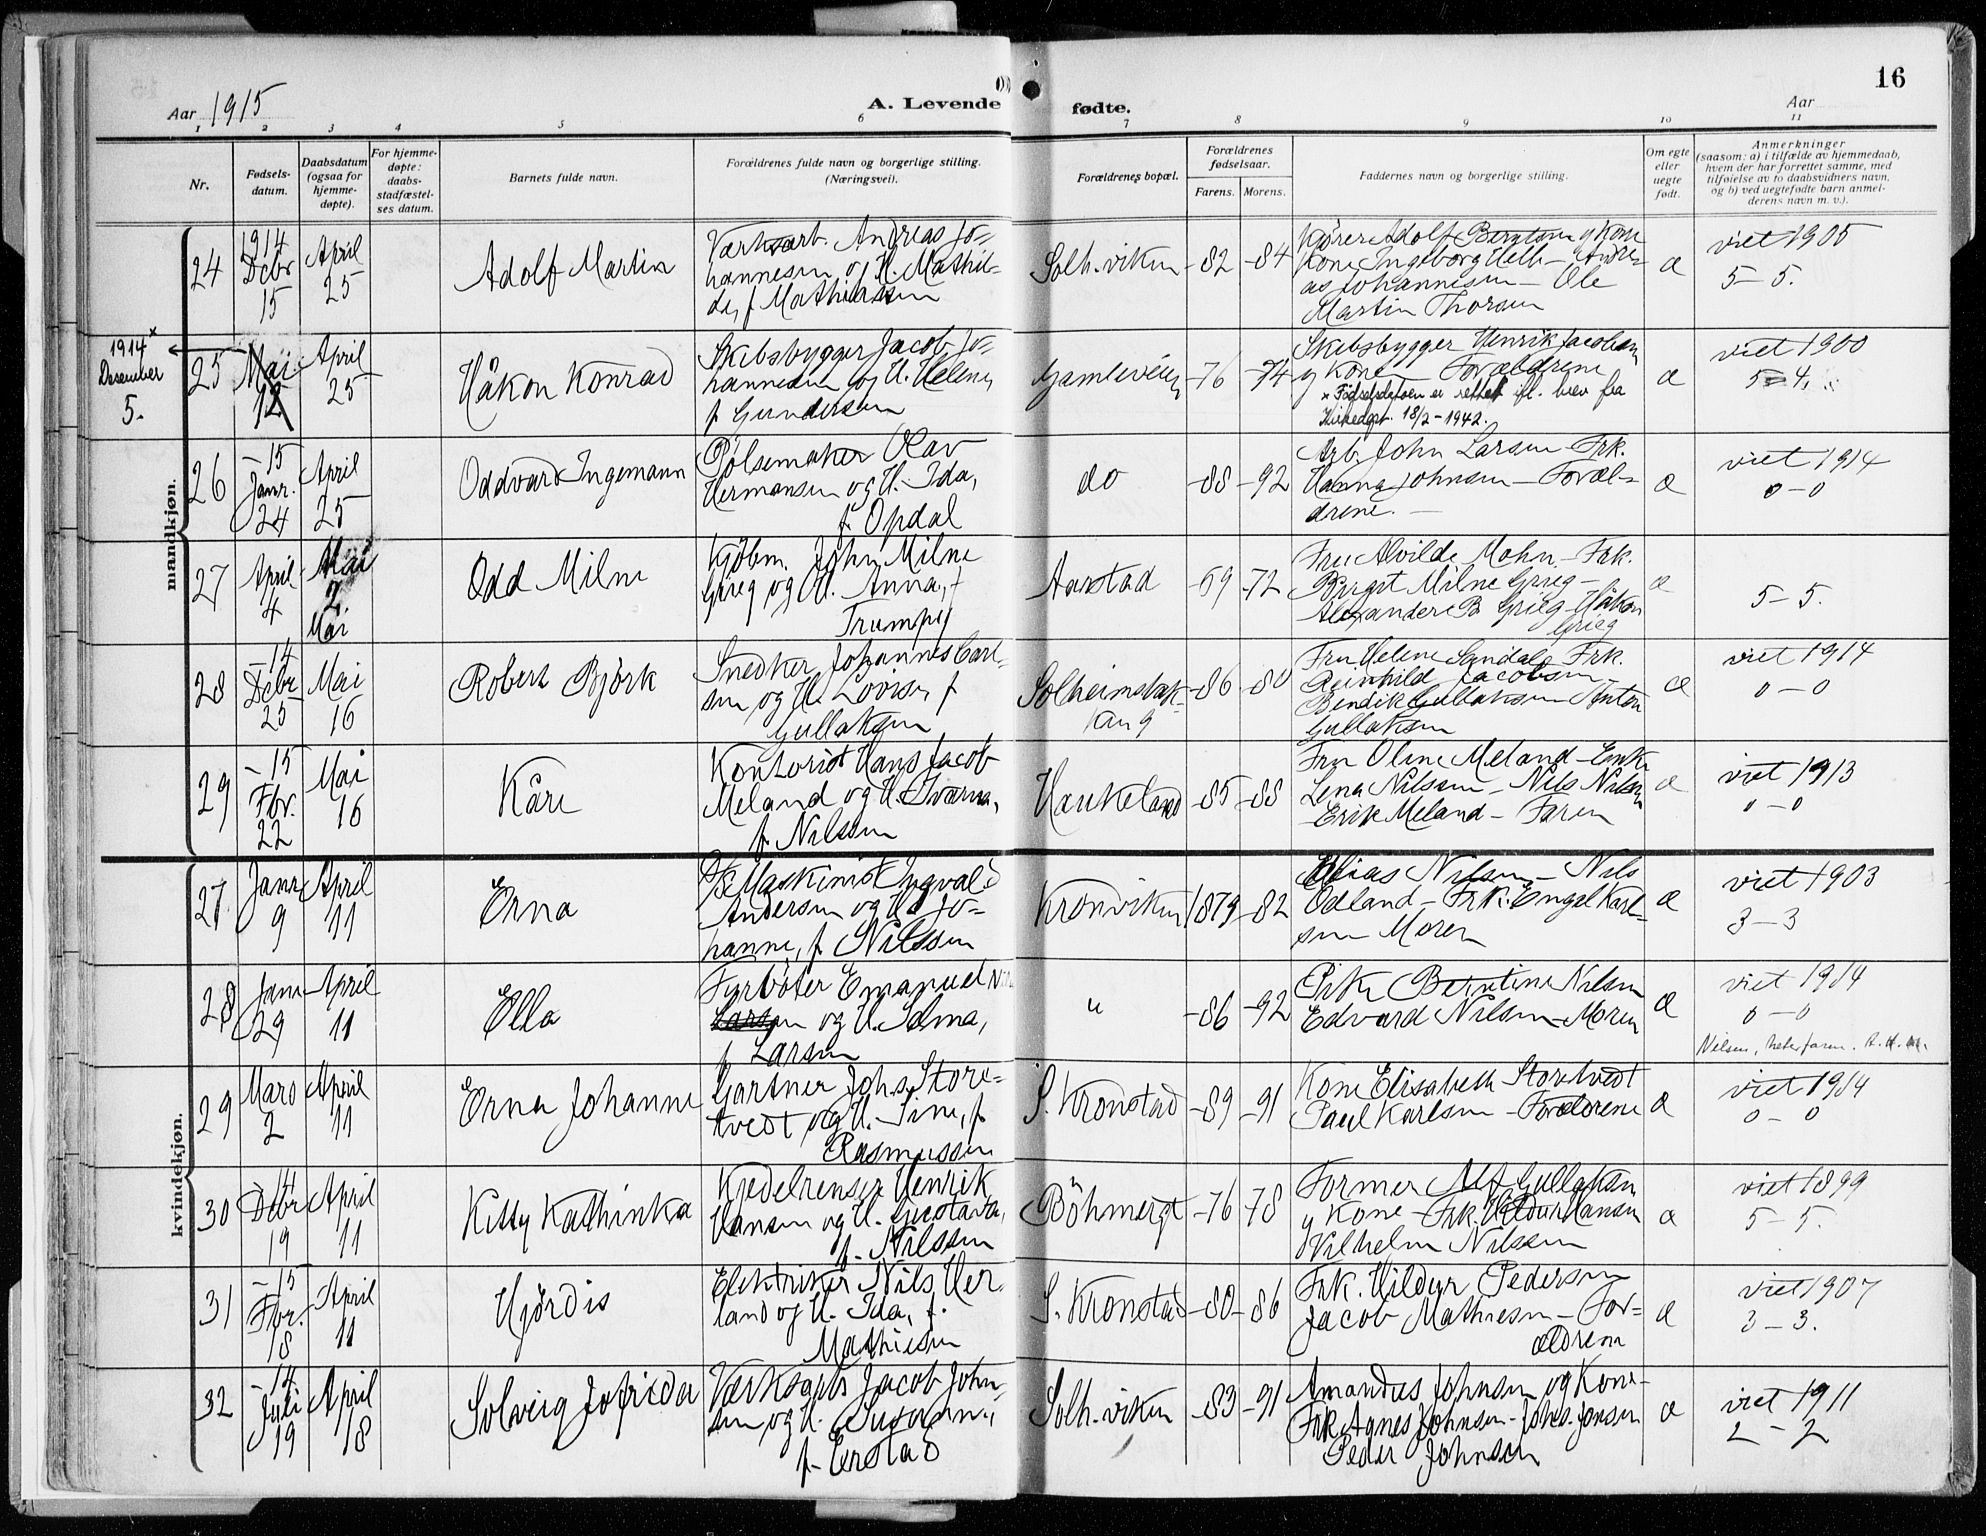 16
Aar 1915
A. Levende fødte.
Aar
1 2 3 4 5 6 7 8 9 10 11
Nr.
Fødsels-
datum.
Daabsdatum
(ogsaa for
hjemme-
døpte).
For hjemme-
døpte:
daabs-
stadfæstel-
ses datum.
Barnets fulde navn.
Forældrenes fulde navn og borgerlige stilling.
(Næringsvei).
Forældrenes bopæl.
Forældrenes
fødselsaar.
Farens. Morens.
Faddernes navn og borgerlige stilling.
Om egte
eller
uegte
født.
Anmerkninger
(saasom: a) i tilfælde av hjemmedaab,
hvem der har forrettet samme, med
tilføielse av to daabsvidners navn,
og b) ved uegtefødte barn anmel-
derens navn m. v.).
mandkjøn.
24
1914
Debr
15
April
25
Adolf Martin
Værksarb. Andreas Jo-
hannesen og H. Mathil-
da, f. Mathiassen
Solh.viken
-82 -84
Kjører Adolf Berntsen y kone
Kone Ingeborg Helle - Andre-
as Johannesen - Ole
Martin Thorsen
æ
viet 1905
5 - 5.
1914 x
Desember
5.
25
Mai
12
April
25
Håkon Konrad
Skibsbygger Jacob Jo-
hannesen og H. Helene,
f. Gundersen
Gamleveien
-76 -74
Skibsbygger Henrik Jacobsen
y kone - Forældrene
x Fødselsdatoen er rettet ifl. brev fra
Kirkedept. 18/2 - 1942.
æ
viet 1900
5 - 4.
26
- 15
Janr.
24
April
25
Oddvard Ingemann
Pølsemaker Olav
Hermansen og H. Ida,
f. Opdal
do
-88 -92
Arb. John Larsen - Frk.
Hanna Johnsen - Foræl-
drene. -
æ
viet 1914
0 - 0
27
April
4
Mai
2
Mai
Odd Milne
Kjøbm. John Milne
Grieg og H. Anna, f
Trumpy
Aarstad
-69 -72
Fru Alvilde Mohn - Frk.
Birgit Milne Grieg -
Alexander B Grieg - Håkon
Grieg
æ
5 - 5.
28
- 14
Debr
25
Mai
16
Robert Björk
Snedker Johannes Carl-
sen og H. Lovise, f
Gullaksen
Solheimsbak-
ken 9
-86 -80
Fru Helene Sandals Frk.
Reinhild Jacobsen -
Bendik Gullaksen - Anton
Gullaksen
æ
viet 1914
0 - 0
29
- 15
Fbr.
22
Mai
16
Kåre
Kontorist Hans Jacob
Meland og H.
f. Nilssen
Haukeland
-85 -88
Fru Oline Meland - Enke
Lena Nilssen - Nils Nilsen
Erik Meland - Faren
æ
viet 1913
0 - 0
kvindekjøn.
27
Janr
9
April
11
Erna
Maskinist Ingvald
Andersen og H. Jo-
hanne, f. Nilssen
Kronviken
1879 -82
Elias Nilsen - Nils
Odland - Frk. Engel Karl-
sen Moren
æ
viet 1903
3 - 3
28
Janr
29
April
11
Ella
Fyrbøter Emanuel
Larsen og H. Selma,
f Larsen
"
-86 -92
Pike Berntine Nilsen
Edvard Nilsen - Moren
æ
viet 1914
0 - 0
Nilsen, heter faren.
29
Mars
2
April
11
Erna Johanne
Gartner Johs Store-
tvedt og H. Sine, f
Rasmussen
S. Kronstad
-89 -91
Kone Elisabeth Storetvedt
Paul Karlsen - Forældrene
æ
viet 1914
0 - 0
30
14
Debr
19
April
11
Kitty Kathinka
Kjedelrenser Henrik
Hansen og H. Gustava,
f. Nilssen
Böhmergt
-76 78
Former Alf Gullaksen
y kone - Frk. Hildur Hansen
Vilhelm Nilssen
æ
viet 1899
5 - 5.
31
- 15
Fbr.
18
April
11
Hjördis
Elektriker Nils Her-
land og H. Ida, f.
Mathiesen
S. Kronstad
-80 -86
Frk. Hildur Pedersen
Jacob Mathiesen - For-
ældrene
æ
viet 1907
3 - 3.
32
- 14
Juli
19
April
18
Solveig Jofrida
Værksarb. Jacob John-
sen og H. Susanne,
f. Erstad
Solh.viken
-83 -91
Amandus Johnsen og Kone -
Frk Agnes Johnsen - Johs. Jonsen
Peder Johnsen
æ
viet 1911
2 - 2